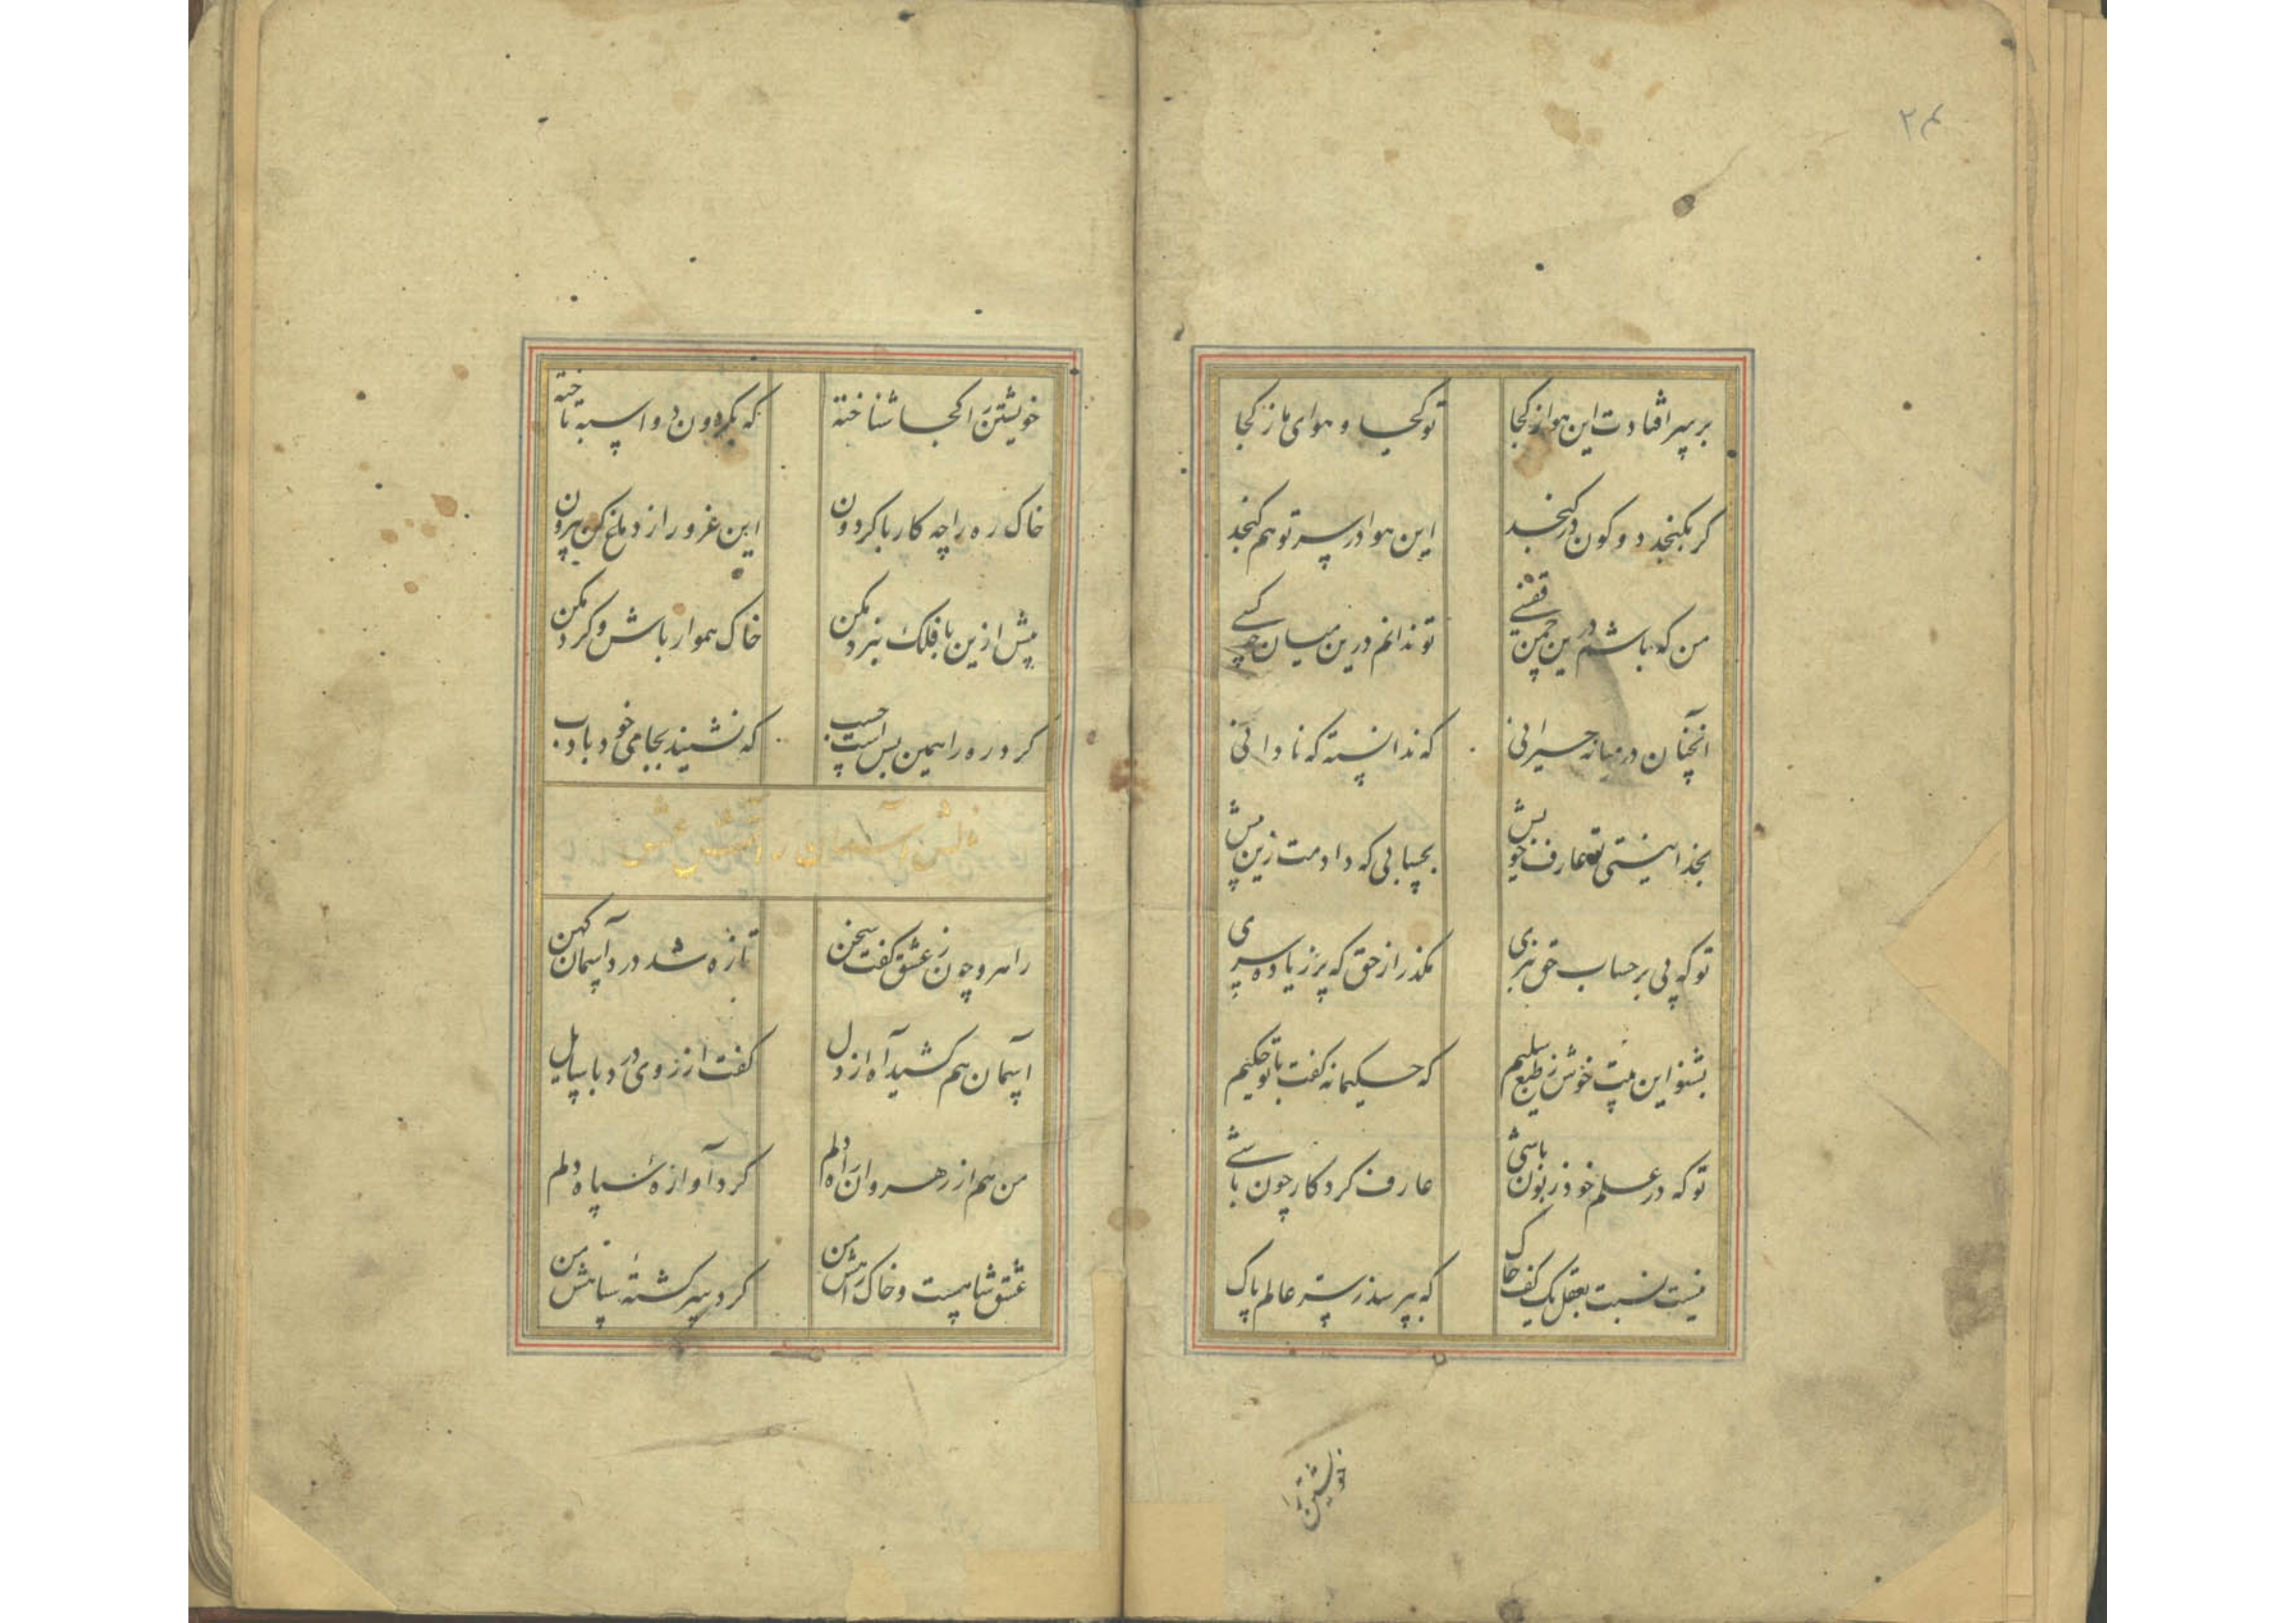 ۲۴
بر سپهر افتادت این هوا ز کجا تو کجا و هوای ما ز کجا
کر بکنجد دو کون در کنجد این هوا در سر تو هم کنجد
من که باشم درین چمن قفسی تو ندانم درین میان چه کسی
آنچنان در میانه حیرانی که ندانسته که نادانی
بخدا نیستی تو عارف خویش بحسابی که دادمت زین پیش
تو که پی بر حساب حق نبری مکذر از حق که پر زیاده سری
بشنو این بیت خوش ز طبع سلیم که حکیمانه کفت با تو حکیم
تو که در علم خود زبون باشی عارف کردکار چون باشی
نیست نسبت بعقل یک کف خاک که بپرسد ز سر عالم پاک
خویشتن را
خویشتن را کجا شناخته که بکردون دو اسبه تاخته
خاک ره را چه کار با کردون این غرور از دماغ کن بیرون
پیش ازین با فلک نبرد مکن خاک هموار باش و کرد مکن
کرد ره را همین بس است حسب که نشیند بجای خود بادب
آسمان آتش عشق
راهرو چون ز عشق کفت سخن تازه شد درد آسمان کهن
آسمان هم کشید آه از دل کفت از روی درد با سایل
من هم از رهروان راه دلم کرد آوازه سپاه دلم
عشق شاهیست و خاک راهش من کرد سر کشته سپاهش من